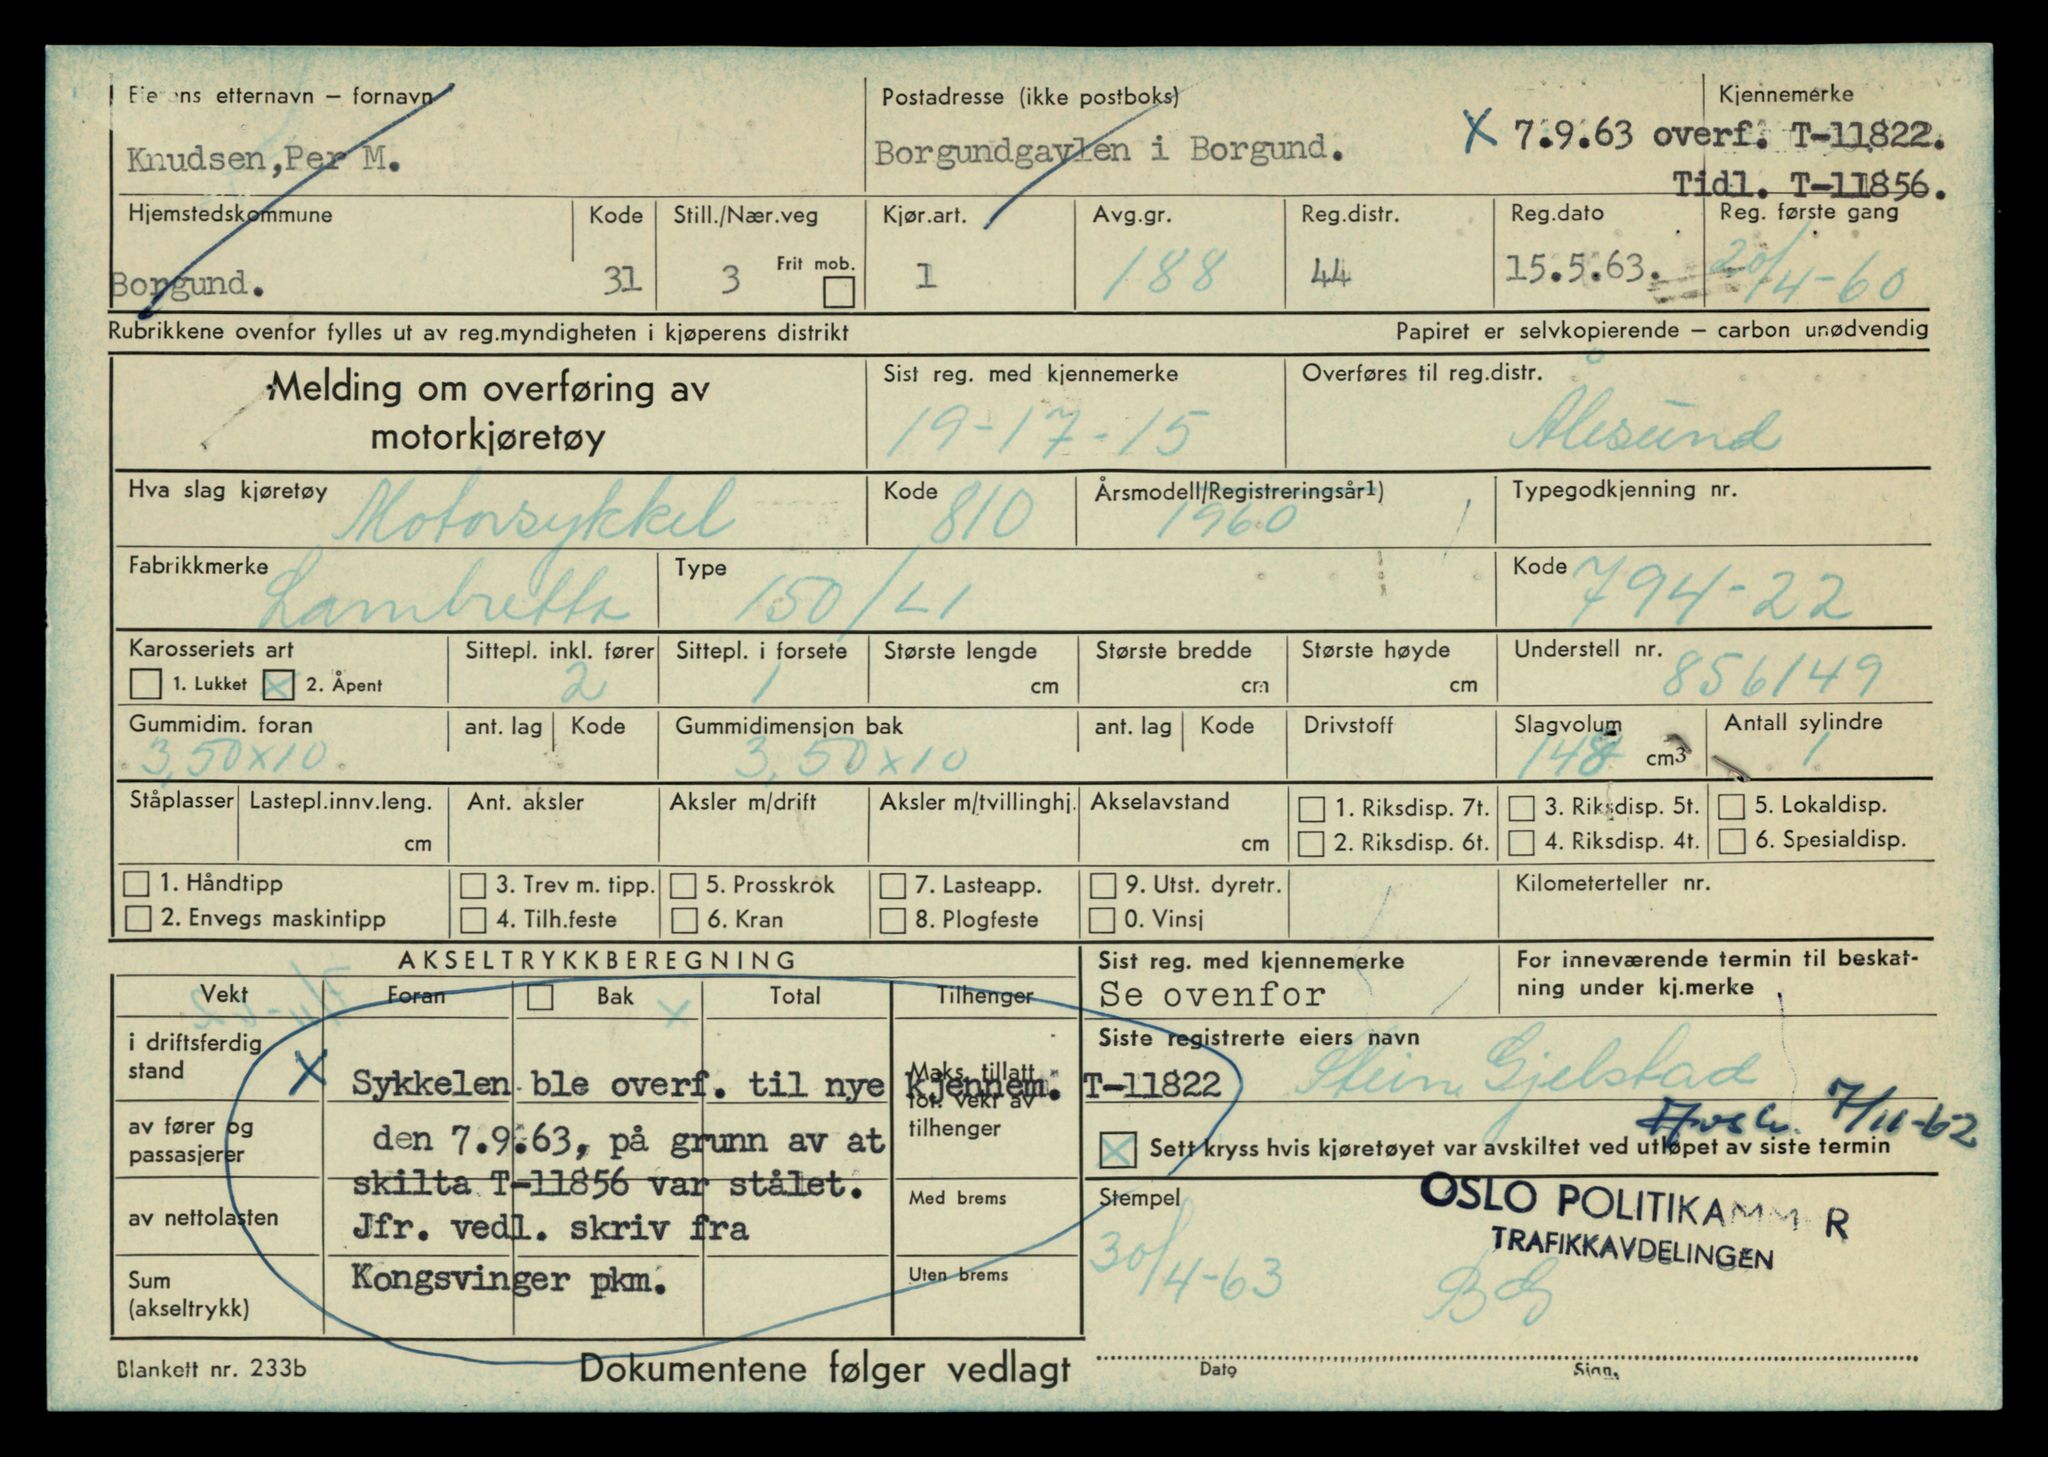 Eierens etternavn – fornavn
Knudsen,Per M.
Postadresse (ikke postboks)
Borgundgavlen i Borgund.
Kjennemerke
X 7.9.63 overf. T-11822.
Tidl. T-11856.
Hjemstedskommune
Borgund.
Kode
31
Still./Nær.veg
3
Frit mob.
Kjør.art.
1
Avg.gr.
188
Reg.distr.
44
Reg.dato
15.5.63.
Reg. første gang
20/4-60
Rubrikkene ovenfor fylles ut av reg.myndigheten i kjøperens distrikt
Papiret er selvkopierende – carbon unødvendig
Melding om overføring av
motorkjøretøy
Sist reg. med kjennemerke
19-17-15
Overføres til reg.distr.
Ålesund
Hva slag kjøretøy
Motorsykkel
Kode
810
Årsmodell/Registreringsår1)
1960
Typegodkjenning nr.
Fabrikkmerke
Lambretta
Type
150/L1
Kode
794-22
Karosseriets art
1. Lukket X 2. Åpent
Sittepl. inkl. fører
2
Sittepl. i forsete
1
Største lengde
cm
Største bredde
cm
Største høyde
cm
Understell nr.
856149
Gummidim. foran
3,50x10
ant. lag
Kode
Gummidimensjon bak
3,50x10
ant. lag
Kode
Drivstoff
Slagvolum
148 cm3
Antall sylindre
1
Ståplasser
Lastepl.innv.leng.
cm
Ant. aksler
Aksler m/drift
Aksler m/tvillinghj.
Akselavstand
cm
1. Riksdisp. 7t.
2. Riksdisp. 6t.
3. Riksdisp. 5t.
4. Riksdisp. 4t.
5. Lokaldisp.
6. Spesialdisp.
1. Håndtipp
2. Envegs maskintipp
3. Trev m. tipp.
4. Tilh.feste
5. Prosskrok
6. Kran
7. Lasteapp.
8. Plogfeste
9. Utst. dyretr.
0. Vinsj
Kilometerteller nr.
AKSELTRYKKBEREGNING
Vekt
Foran
Bak
Total
Tilhenger
i driftsferdig
stand
av fører og
passasjerer
av nettolasten
Sum
(akseltrykk)
Maks. tillatt
for. vekt av
tilhenger
Med brems
Uten brems
X Sykkelen ble overf. til nye kjennem. T-11822
den 7.9.63, på grunn av at
skilta T-11856 var stålet.
Jfr. vedl. skriv fra
Kongsvinger pkm.
Sist reg. med kjennemerke
Se ovenfor
For inneværende termin til beskat-
ning under kj.merke
Siste registrerte eiers navn
Stein Gjelstad
7/11-62
X Sett kryss hvis kjøretøyet var avskiltet ved utløpet av siste termin
Stempel
OSLO POLITIKAMMER
TRAFIKKAVDELINGEN
30/4-63
BG
Dato
Sign.
Blankett nr. 233b
Dokumentene følger vedlagt